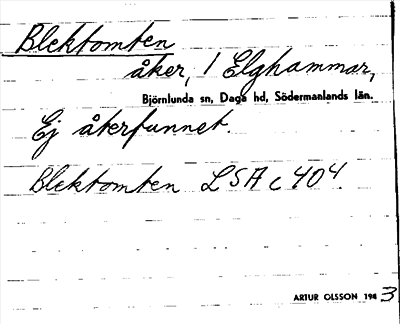 Blektomten
åker, / Elghammar,
Björnlunda sn, Daga hd, Södermanlands län.
Ej återfunnet.
Blektomten LSA c 404.
ARTUR OLSSON 1943